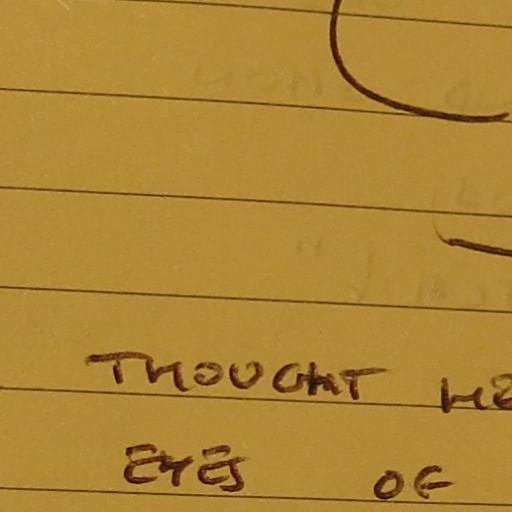 THOUGHT HE
EYES OF